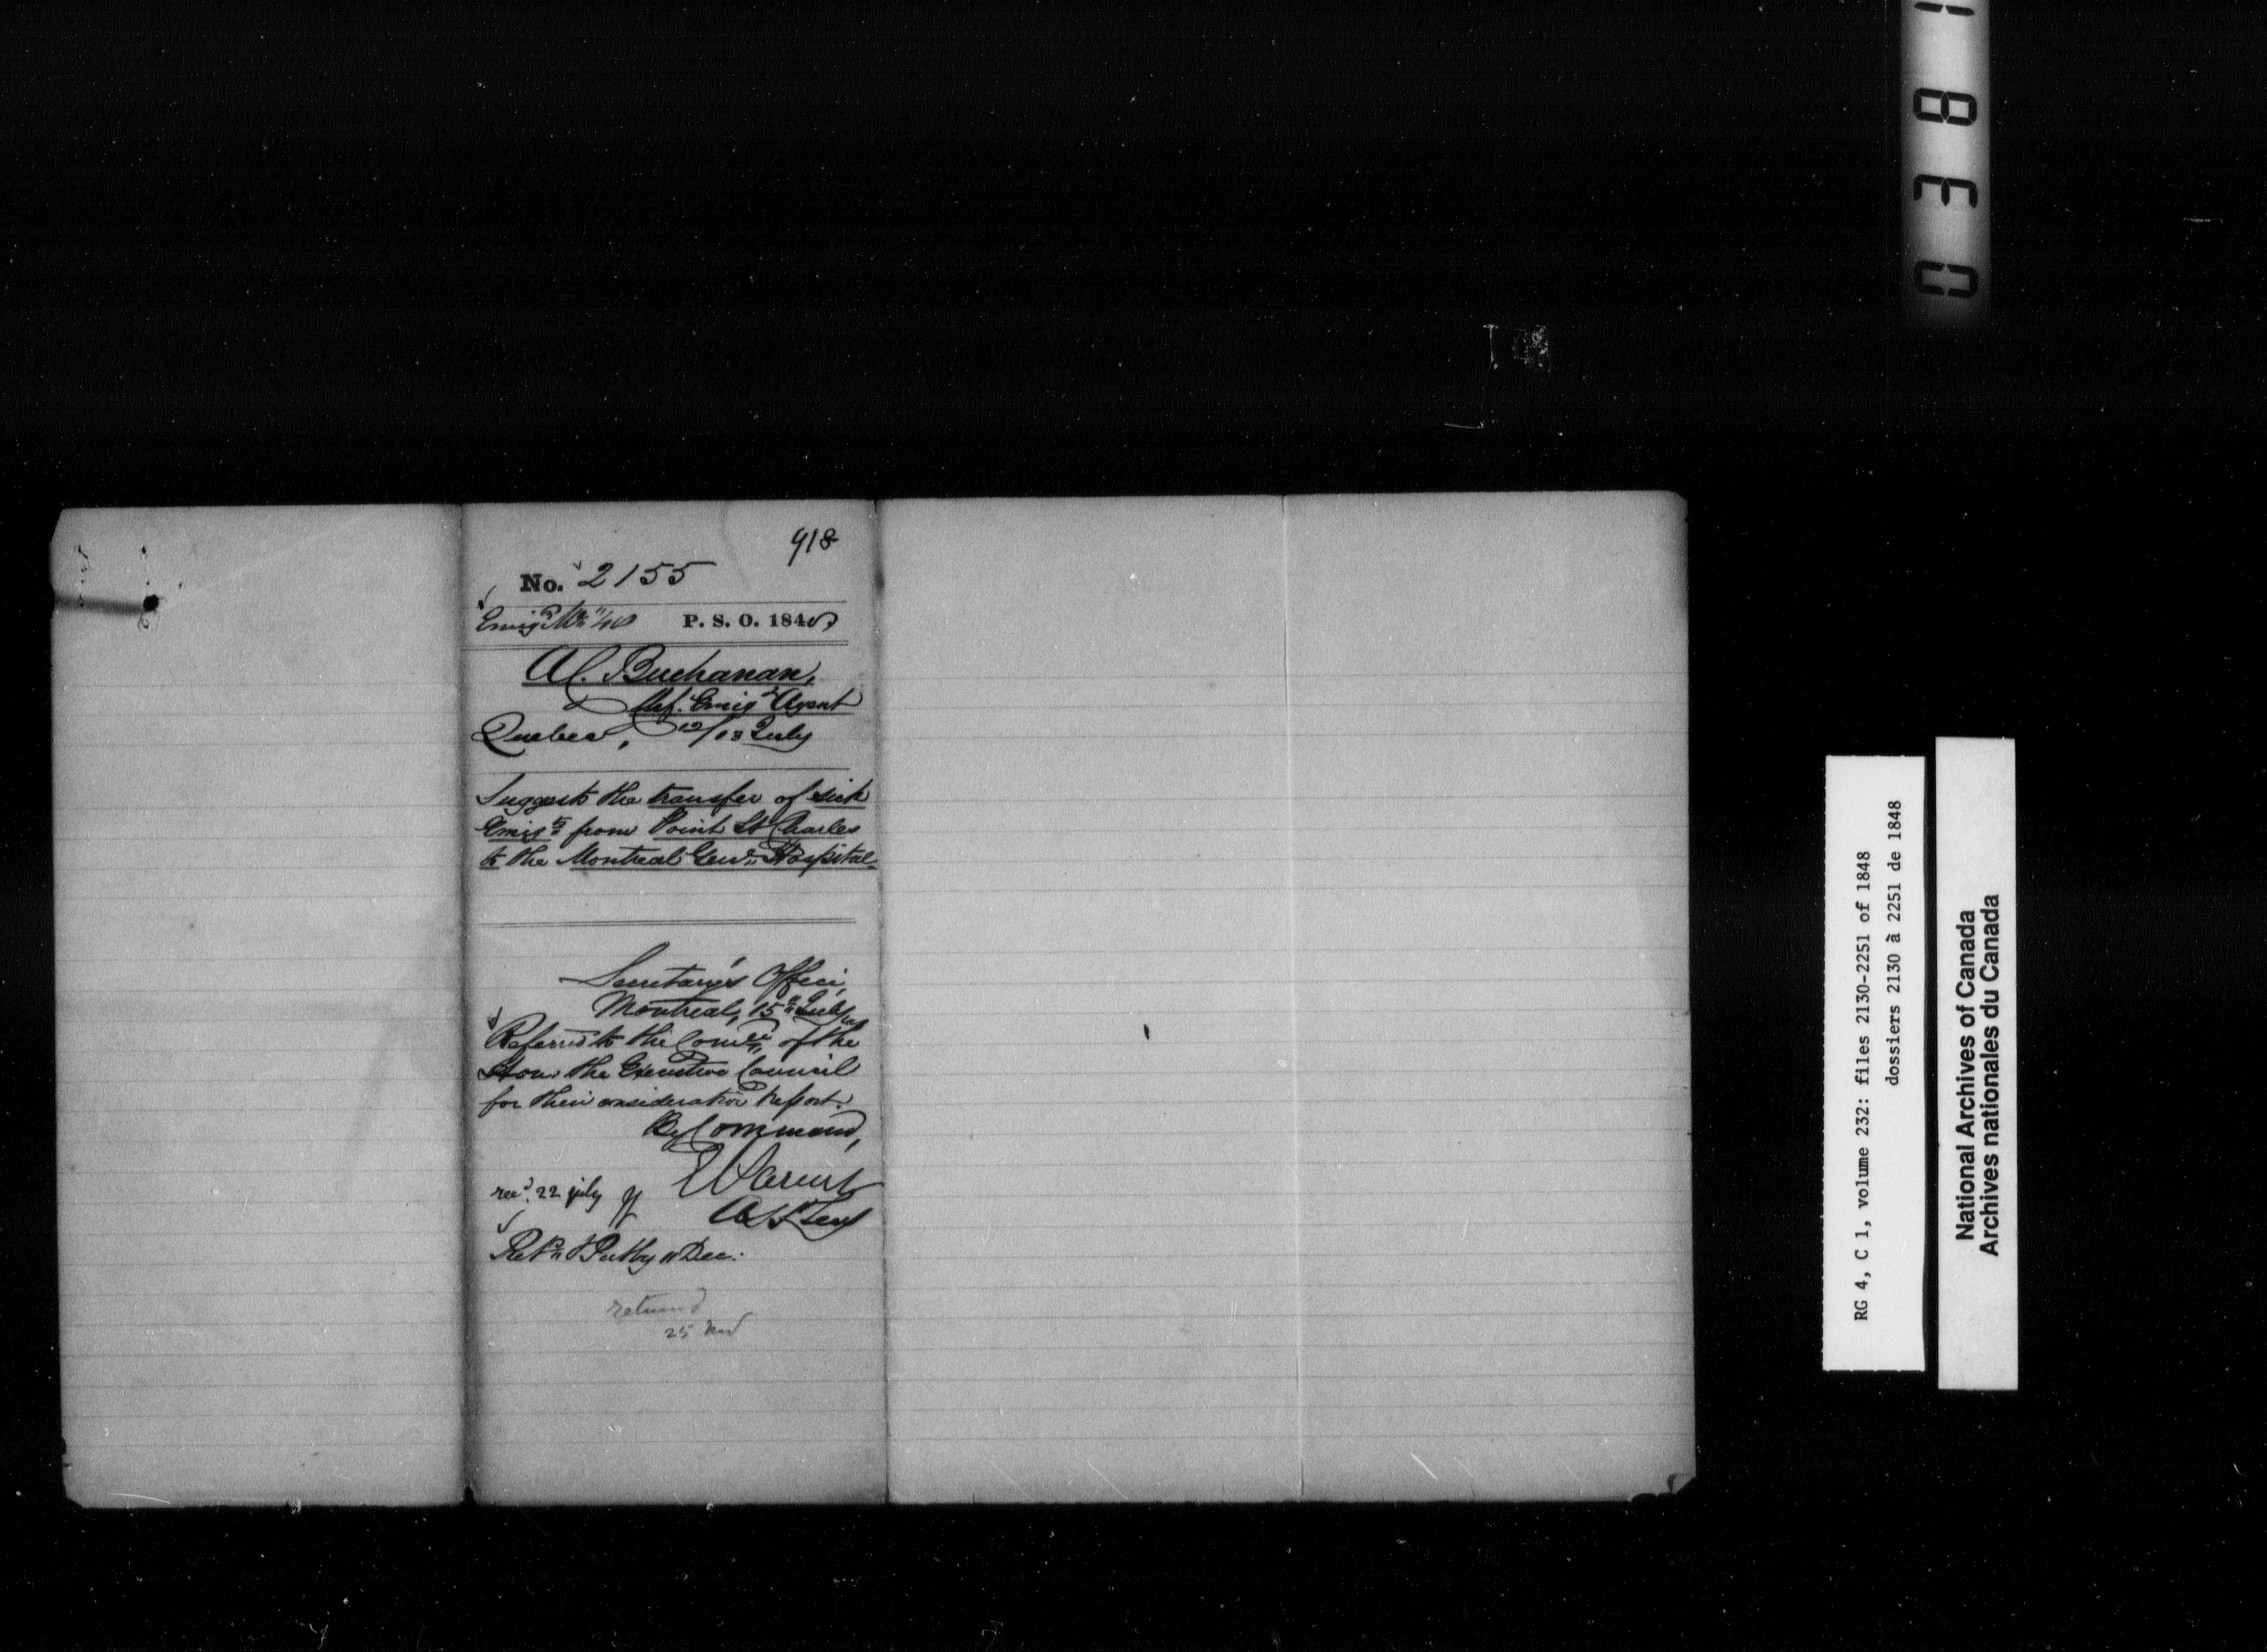 918
No. 2155
P. S. O. 1848
A C. Buchanan,
Chf. Emigt Agent
Quebec, 12/13 July
Suggests the transfer of sick
Emigts from Point St Charles
to the Montreal Genl. Hospital
Secretary's Office,
Montreal, 15th July
Referred to the Comee. of the
Hon. the Executive Council
for their consideration & report.
By Command,
E Parent
Asst Secy
recd. 22 july
Dec:
returnd
25 Nov
0381
RG 4, C 1, volume 232: files 2130-2251 of 1848
dossiers 2130 à 2251 de 1848
National Archives of Canada
Archives nationales du Canada